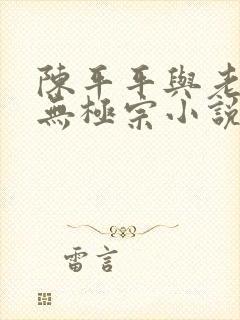 陳平平與老
無極宗小說
雷言